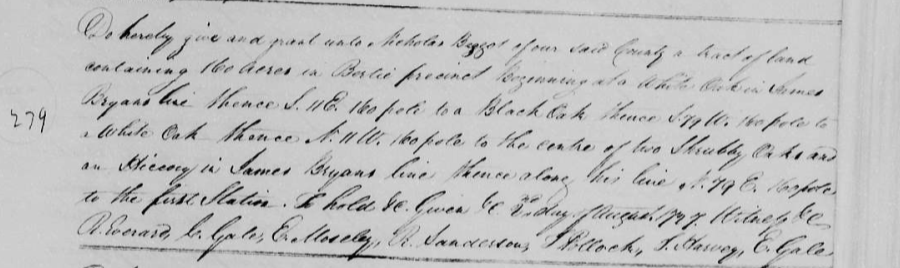 Do hereby give and grant unto Nicholas Boggot of our said County a tract of land
containing 160 acres in Bertie precinct Beginning at a White Oak in James
Bryans line thence S. 11 E. 160 pole to a Black Oak thence S. 79 W. 160 pole to
279
a White Oak thence N. 11 W. 160 pole to the centre of two Shrubby Oaks and
an Hiccory in James Bryans line thence along his line N. 79 E. 160 pole
to the first Station. To hold &c. Given &c day of August Witness &c
R. Everard, C. Gale, E. Moseley, R. Sanderson, T Pollock, T. Harvey, E. Gale